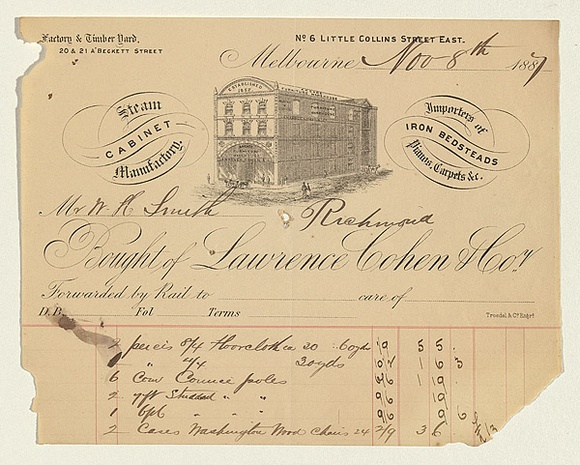 Factory & Timber Yard,
20 & 21 A'BECKETT STREET
No 6 LITTLE COLLINS STREET EAST.
Melbourne Nov 8th 1887
ESTABLISHED
Steam
CABINET
Manufactory.
Importers of
IRON BEDSTEADS
Pianos, Carpets &c.
Mr W. H. Smith Richmond
Bought of Lawrence Cohen & Co.
Forwarded by Rail to care of
D.B. Fol Terms
Troedel & Co Engrs
2 peices 8/4 Floorcloth 20 60yds 2/9 5 5
2 " 4/4 " 30yds 1
6 Cornice poles
2 7ft Studded " "
1 6ft " " "
2 Cases Washington Wood Chairs 24 2/9 3 6